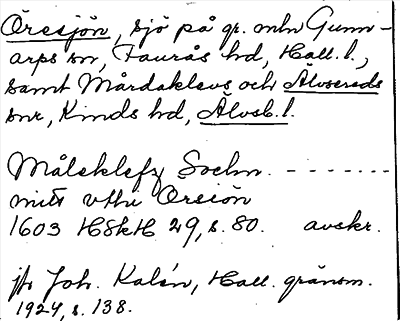 Öresjön, sjö på gr. mln Gunn-
arps sn, Faurås hd, Hall. l.,
samt Mårdaklevs och Älvsereds
snr, Kinds hd, Älvsb. l.
Måleklefz Sochn. - - - - - - -
mitt vthi Öresiön
1603 HSkH 29, s. 80. avskr.
jfr Joh. Kalén, Hall. gränsm.
1924, s. 138.